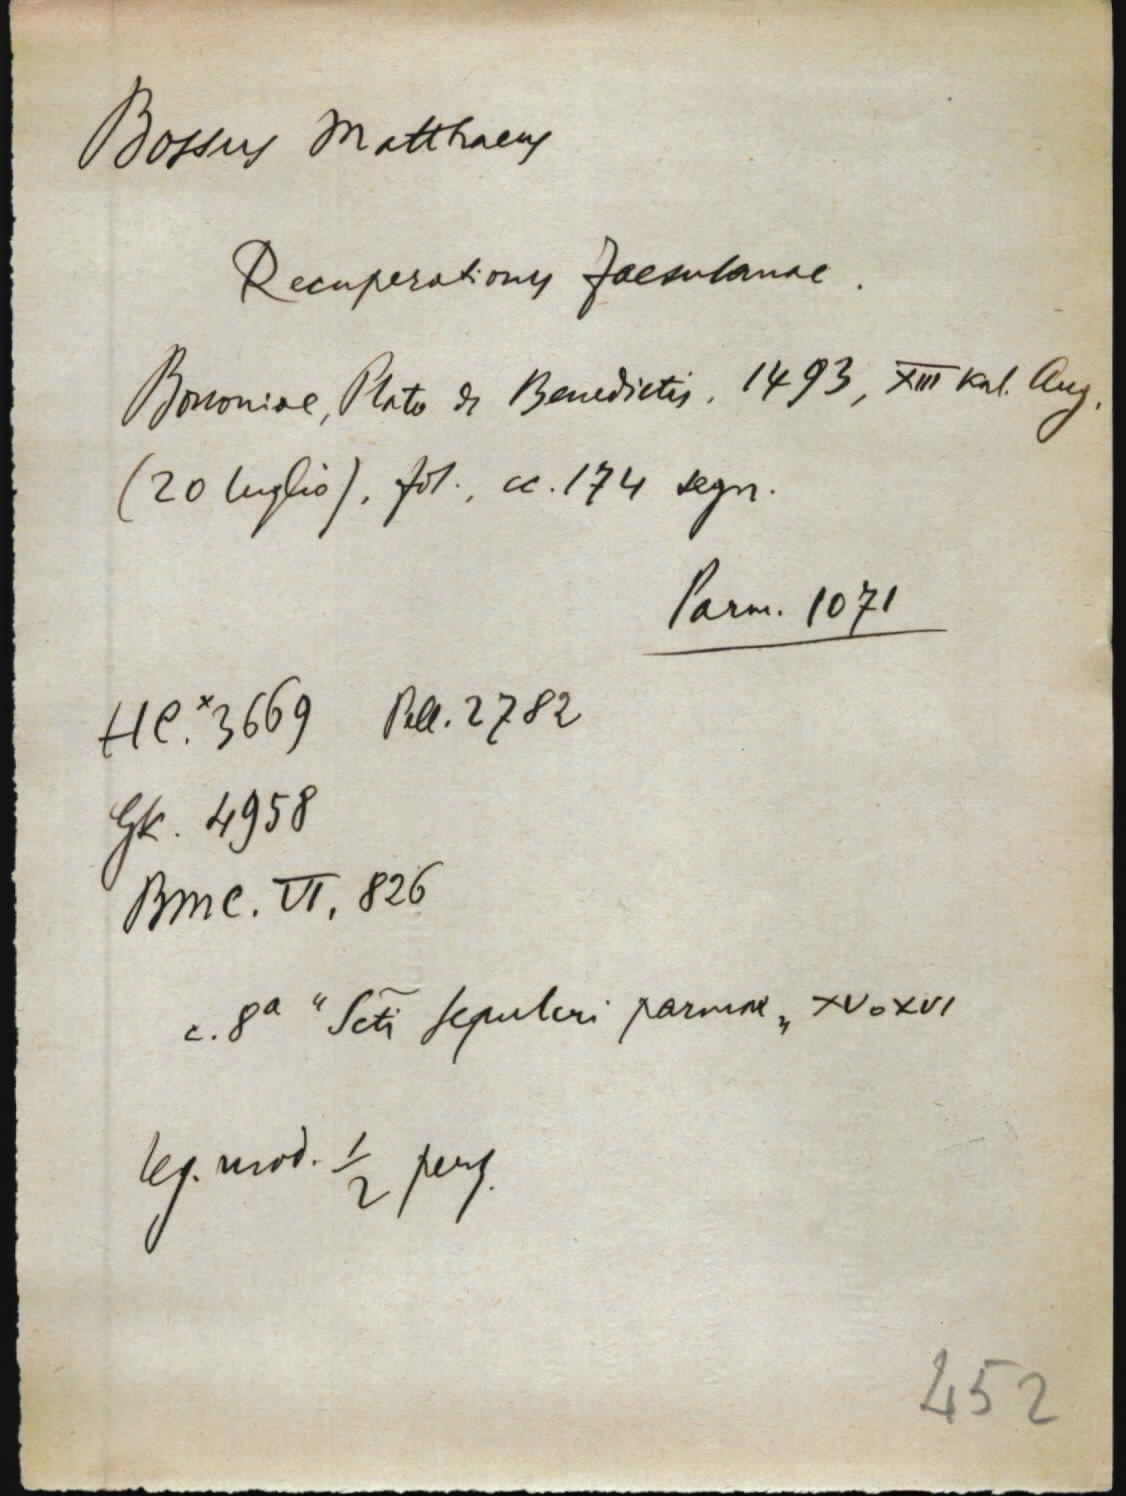 Bossus Matthaeus
Recuperationes faesulanae.
Bononiae, Plato de Benedictis, 1493, XIII kal. Aug.
(20 luglio), fol., cc. 174 segn.
Parm. 1071
HC.*3669 Pell. 2782
Gk. 4958
BMC. VI, 826
c. 8a "Scti sepulcri parmae" XV o XVI
leg. mod. 1/2 perg.
452